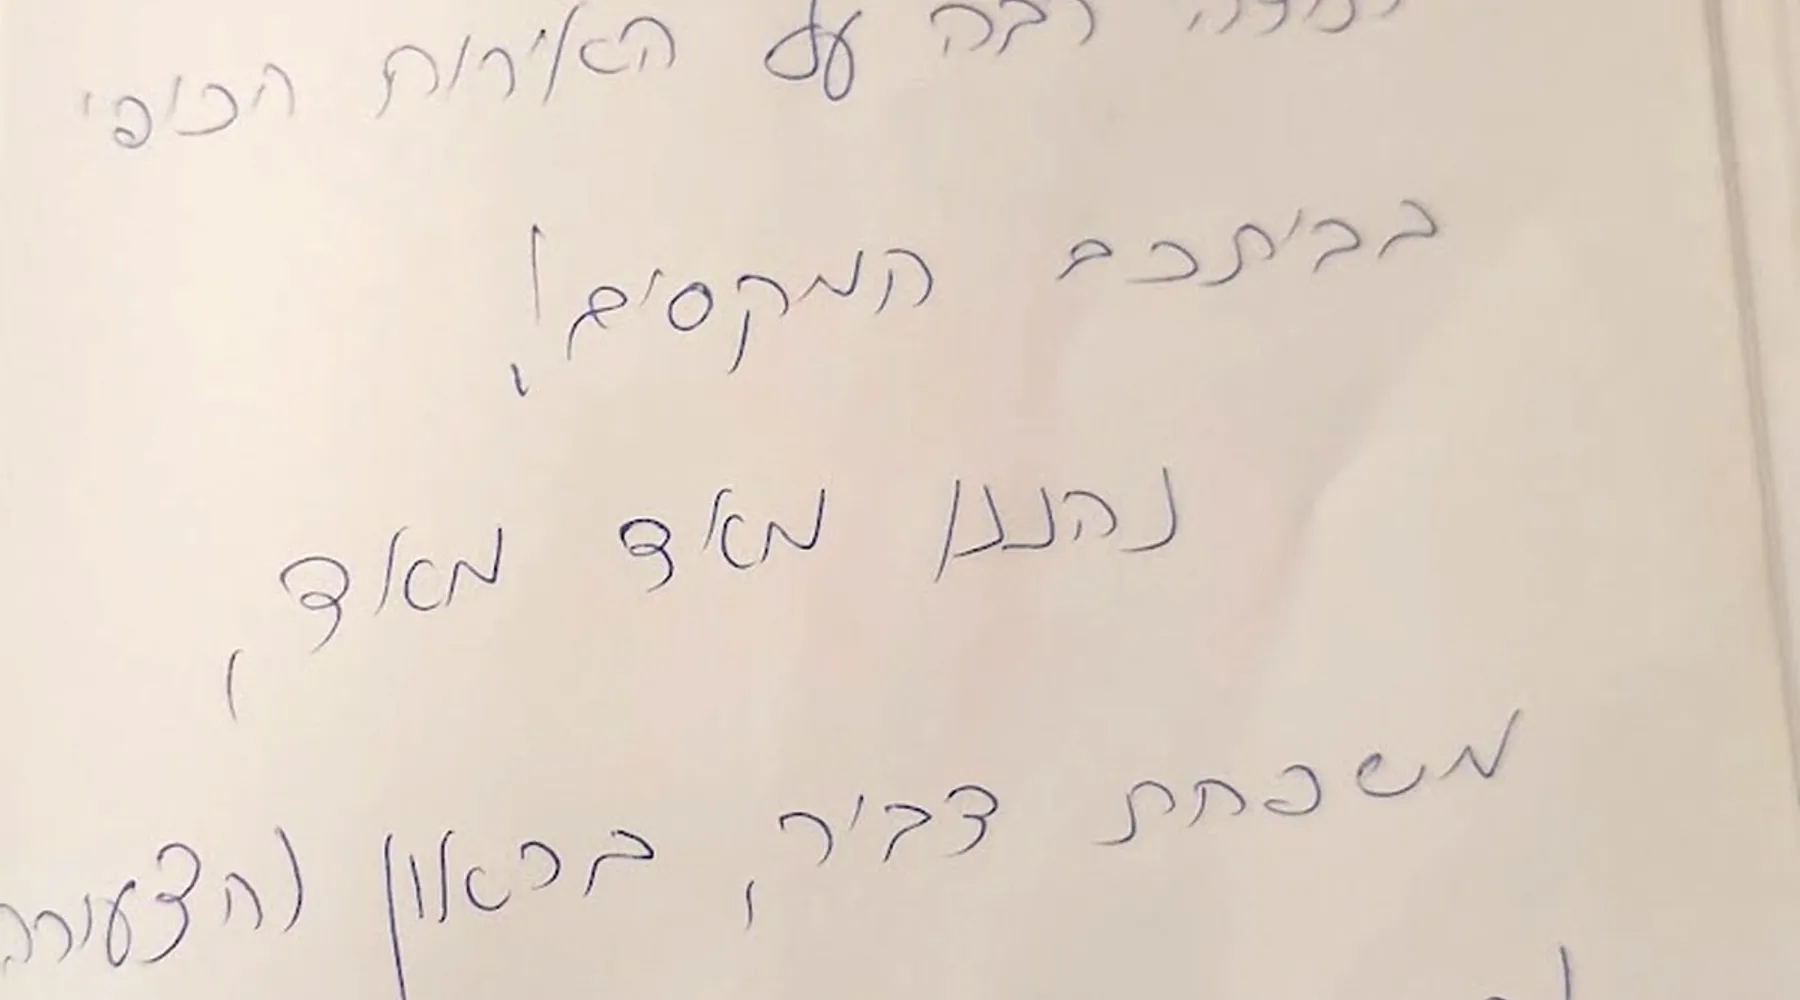 רבה על האירוח הכופי
בביתכם המקסים!
נהננו מאד מאד,
משפחת דביר, בראון (הצעירה